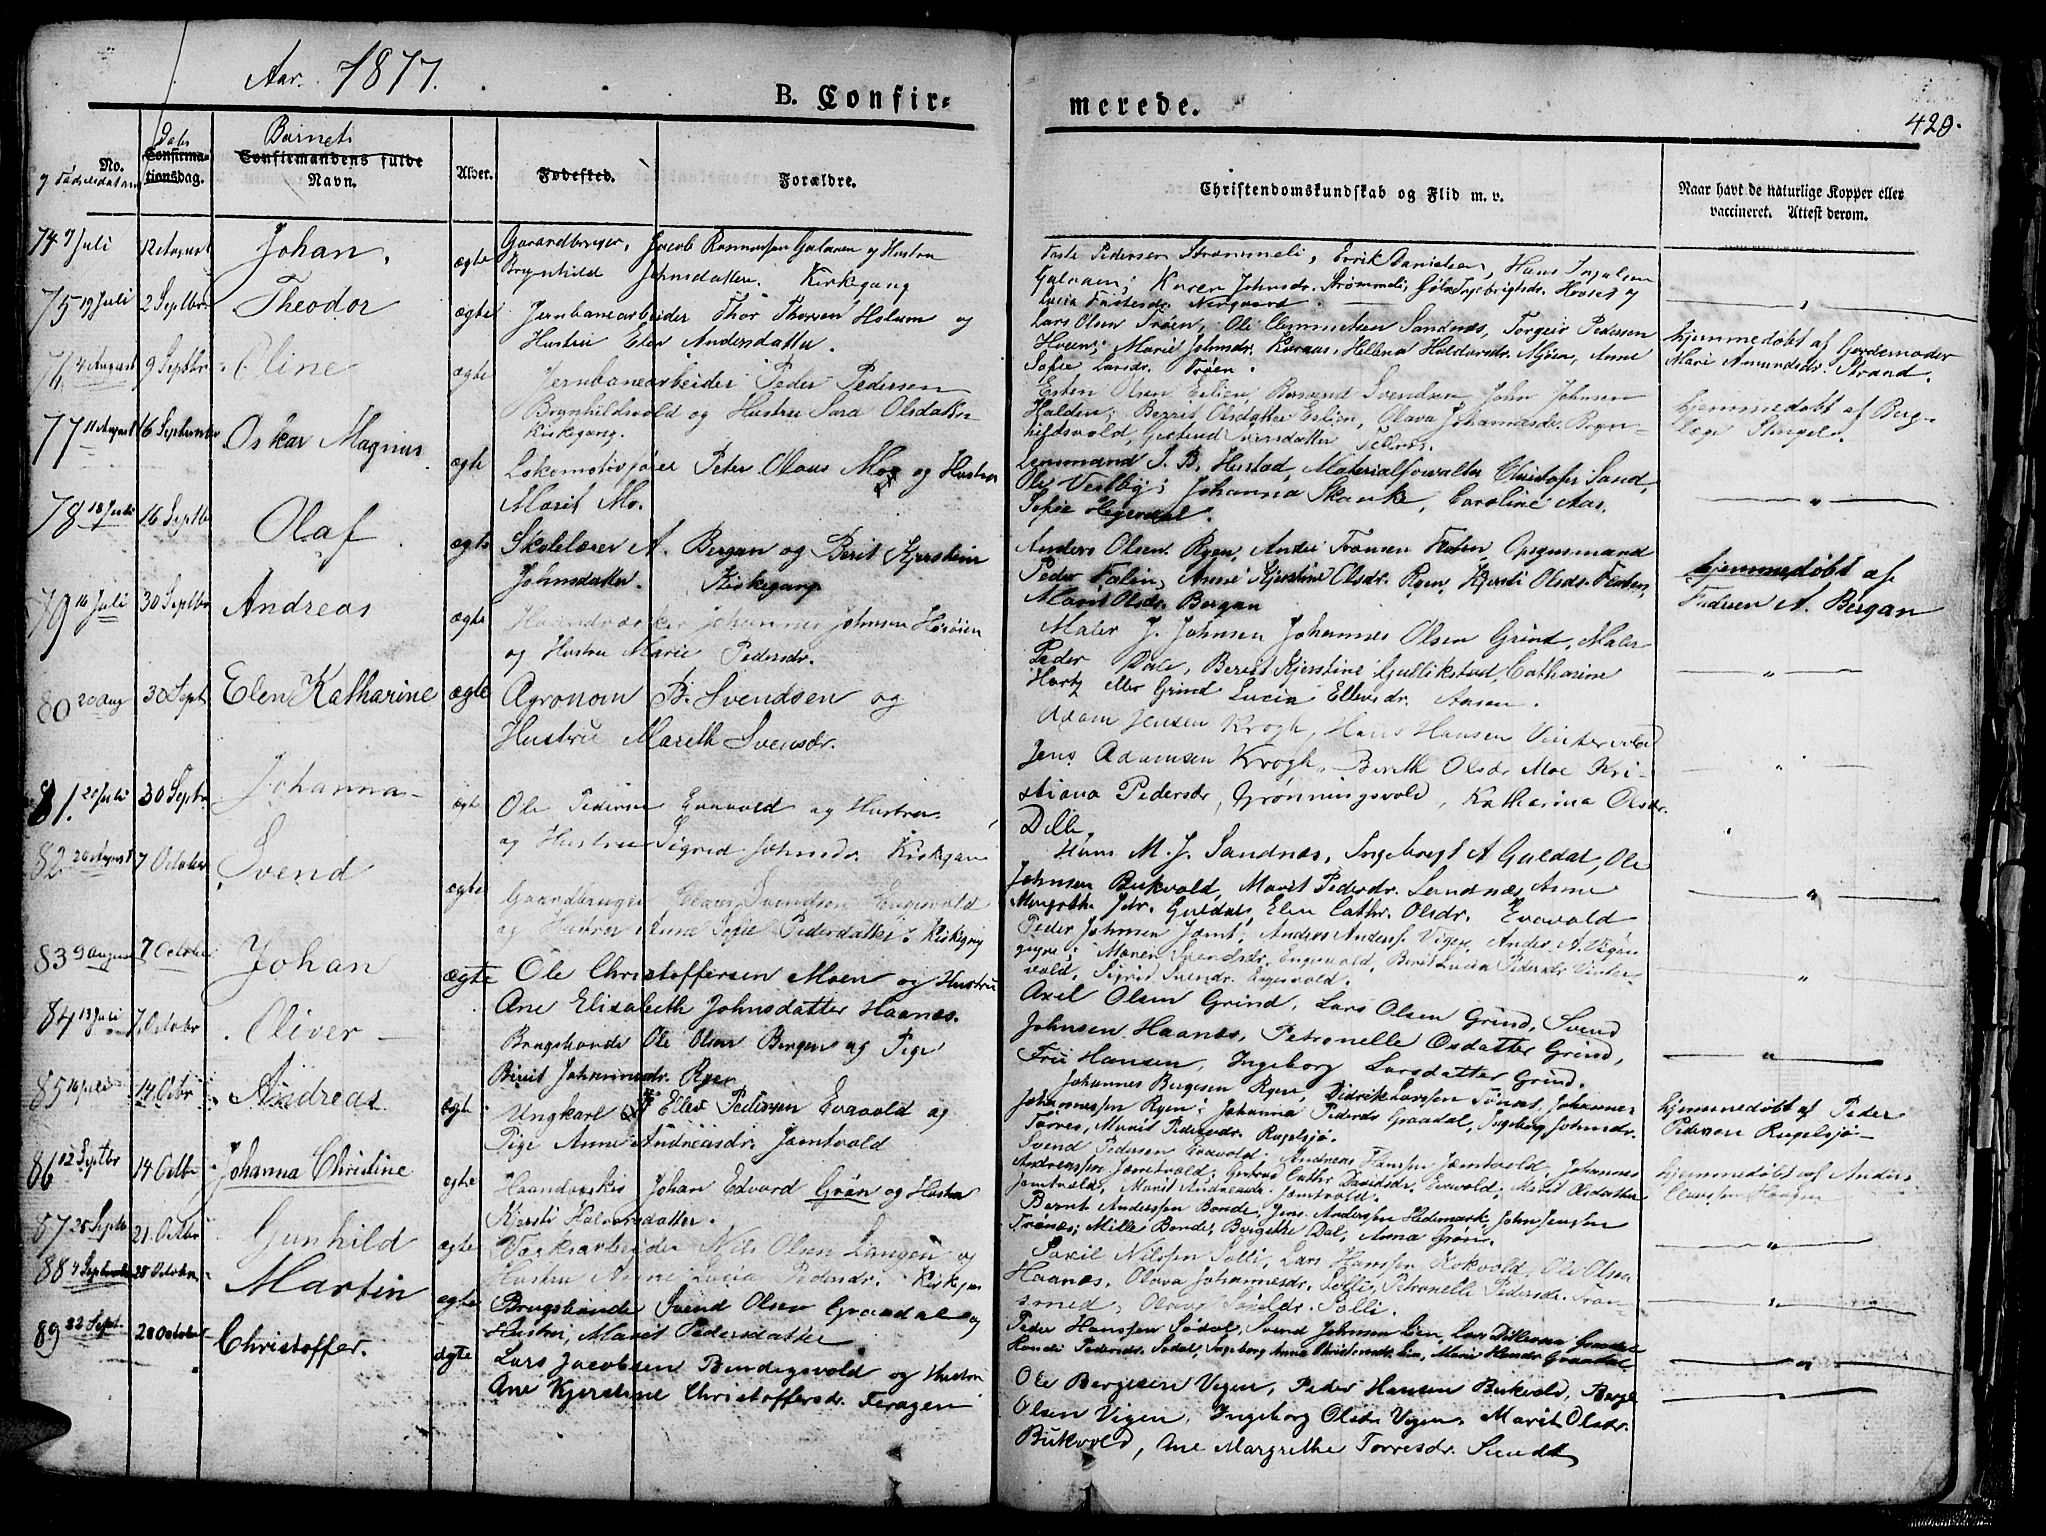 Aar. 1877.
B. Confir=
merede.
420.
No.
Fødselsdatum
Dato
Confirma=
tionsdag.
Barnets
Confirmandens fulde
Navn.
Alder.
Fødested.
Forældre.
Christendomskundskab og Flid m. v.
Naar havt de naturlige Kopper eller
vaccineret. Attest derom.
74 7 Juli 12 August Johan. ægte
Gaardbruger, Jacob Rasmussen Galaaen og Hustru
Brynhild Johnsdatter. Kirkegang
Faste Pedersen Strømmeli, Errik Danielsen, Hans Ingalsen
Galaaen; Karen Johnsdr. Strømmeli, Ingebrigtsdr. Hovset og
Lucia Fastesdr. Nergaard.
75 19 Juli 2 Septbr Theodor ægte
Jernbanearbeider Thor Thorsen Holum og
Hustru Elen Andersdatter.
Lars Olsen Trøen, Ole Clemmetsen Sandnæs, Torgeir Pedersen
Hveen; Marit Johnsdr. Kuraas, Hellena Haldorsdr. Mjøen, Anne
Sofie Larsdr. Trøen.
hjemmedøbt af Gjordemoder
Marie Amundsdr. Strand.
76 4 August 9 Septbr Oline ægte
Jernbanearbeider Peder Pedersen
Brynhildsvold og Hustru Sara Olsdatter
Kirkegang.
Esten Olsen Eslien, Svendsen, John Johnsen
Halden; Berret Olsdatter Eslien, Olava Johannesdr. Bryn-
hildsvold, Gertrud Iversdatter Tellnes.
hjemmedøbt af Berg-
læge Stengel.
77 11 August 16 September Oskar Magnus ægte
Lokomotivfører Peter Olaus Mo og Hustru
Marit Mo.
Lensmand J. B. Hustad, Materialforvalter Christofer Sand,
Ole Vestby; Johanna Skank, Caroline Aas.
Sofie Hegerdal.
"
78 18 Juli 16 Septbr Olaf ægte
Skolelærer A. Bergan og Berit Kjerstine
Johnsdatter. Kirkegang.
Anders Olsen Ryen, Andre Tronsen Floten, Opsynsmand
Peder Falin, Anne Kjerstine Olsdr. Ryen, Kjersti Olsdr. Floten,
Marit Olsdr. Bergan
hjemmedøbt af
Faderen A. Bergan
79 16 Juli 30 Septbr Andreas ægte
Haandværker Johannes Johnsen Hosøien
og Hustru Marie Pedersdr.
Maler J. Johnsen Johannes Olsen Grind, Maler
Peder Dale, Bereit Kjerstine Gullikstad, Catharine
Hartz eller Grind Lucia Ellevsdr. Aasen.
"
80 20 Aug 30 Sept Elen Katharine ægte
Agronom B. Svendsen og
Hustru Mareth Svensdr.
Adam Jensen Krogh, Hans Hansen Vintervold
Jens Adamsen Krogh, Bereth Olsdr Moe Kri-
stiana Pedersdr, Grønningsvold, Katharina Olsdr.
Dille.
81. 20 Juli 30 Septbr Johanna ægte
Ole Pedersen Evavold og Hustru
og Hustru Sigrid Johnsdr. Kirkegan
Hans M. J. Sandnæs, Ingebregt A Guldal, Ole
Johnsen Bukvold, Marit Pedersdr. Sandnæs Anne
Margrethe Jdr. Guldal, Elen Cathr. Olsdr. Evavold
"
82. 20 August 7 October Svend ægte
Gaardbruger Svendsen Engesvold
og Hustru Anna Sofie Pedersdatter. Kirkegang
Peder Johnsen Jæmt, Anders Anders. Vigen, Ander A. Vigen
Maren Svendsdr. Engesvold, Berit Lucia Pedersdr Vinter-
vold, Sigrid Svendr. Engesvold.
"
83 9 August 7 October Johan ægte
Ole Christoffersen Moen og Hustru
Ane Elisabeth Johnsdatter Haanes.
Axel Olsen Grind, Lars Olsen Grind, Svend
Johnsen Haanes, Petronelle Osdatter Grind,
Fru Hansen, Ingeborg Larsdatter Grind.
"
84 13 Juli 7. Octobr Oliver
Brugshande Ole Olsen Bergen og Pige
Birit Johannesdr. Ryen
Johannes Bergesen Ryen, Didrik Larsen Tønset, Johannes
Johannessen Ryen; Johanna Pedersdr Graadal, Ingeborg Johnsdr.
Torres, Marit Pedersdr. Rugelsjø.
hjemmedøbt af Peder
Pedersen Rugelsjø
85 16 Juli 14. Octbr Andreas ægte
Ungkarl Elev Pedersen Evavold og
Pige Anne Andreasdr. Jamtvold
Svend Pedersen Evavold. Andreas Hanssen Jæmtvold, Johannes
Andreassen Jæmtvold, Gertrud Cathr Davidsdr. Evavold, Marit Olsdatter
Jamtvold, Marit Andreasdr. Jæmtvold.
hjemmedøbt af Anders
86 12 Septbr 14 Octbr Johanna Christine ægte
Haandværker Johan Edvard Grøn og Hustru
Kjersti Halvorsdatter.
Bernt Anderssen Bonde, Jens Anderssen Hedemark, John Jenssen
Trønes; Mille Bonde, Bergitte Dal, Anna Grøn.
"
87 25 Septbr 21. Octbr Gunhild ægte
Værksarbeider Nils Olsen Langen og
Hustru Anne Lucia Pedersdr. Kirkegan
Saxil Nilssen Solli, Lars Hanssen Kokvold, Ole Olsen
Haanæs, Olava Johannesdr. Solli, Petronelle Pedersdr. Tron-
smed, Olava Saxildr. Solli.
88 4 September 28 October Martin ægte
Brugshande Svend Olsen Graadal og
Hustru, Marit Pedersdatter
Peder Hanssen Sødal, Svend Johnsen Lien, Lars Graadal
Pedersdr. Sødal, Ingeborg Anna Lien, Marie Graadal
"
89 22 Sept. 28 October Christoffer. ægte
Lars Jacobsen Bendigsvold og Hustru
Ane Kjerstine Christoffersdr. Feragen
Ole Bergesen Vigen, Peder Hansen Bukvold, Berge
Olsen Vigen, Ingeborg Olsdr Vigen. Marit Olsdr.
Bukvold, Ane Margrethe Torresdr. Sundt